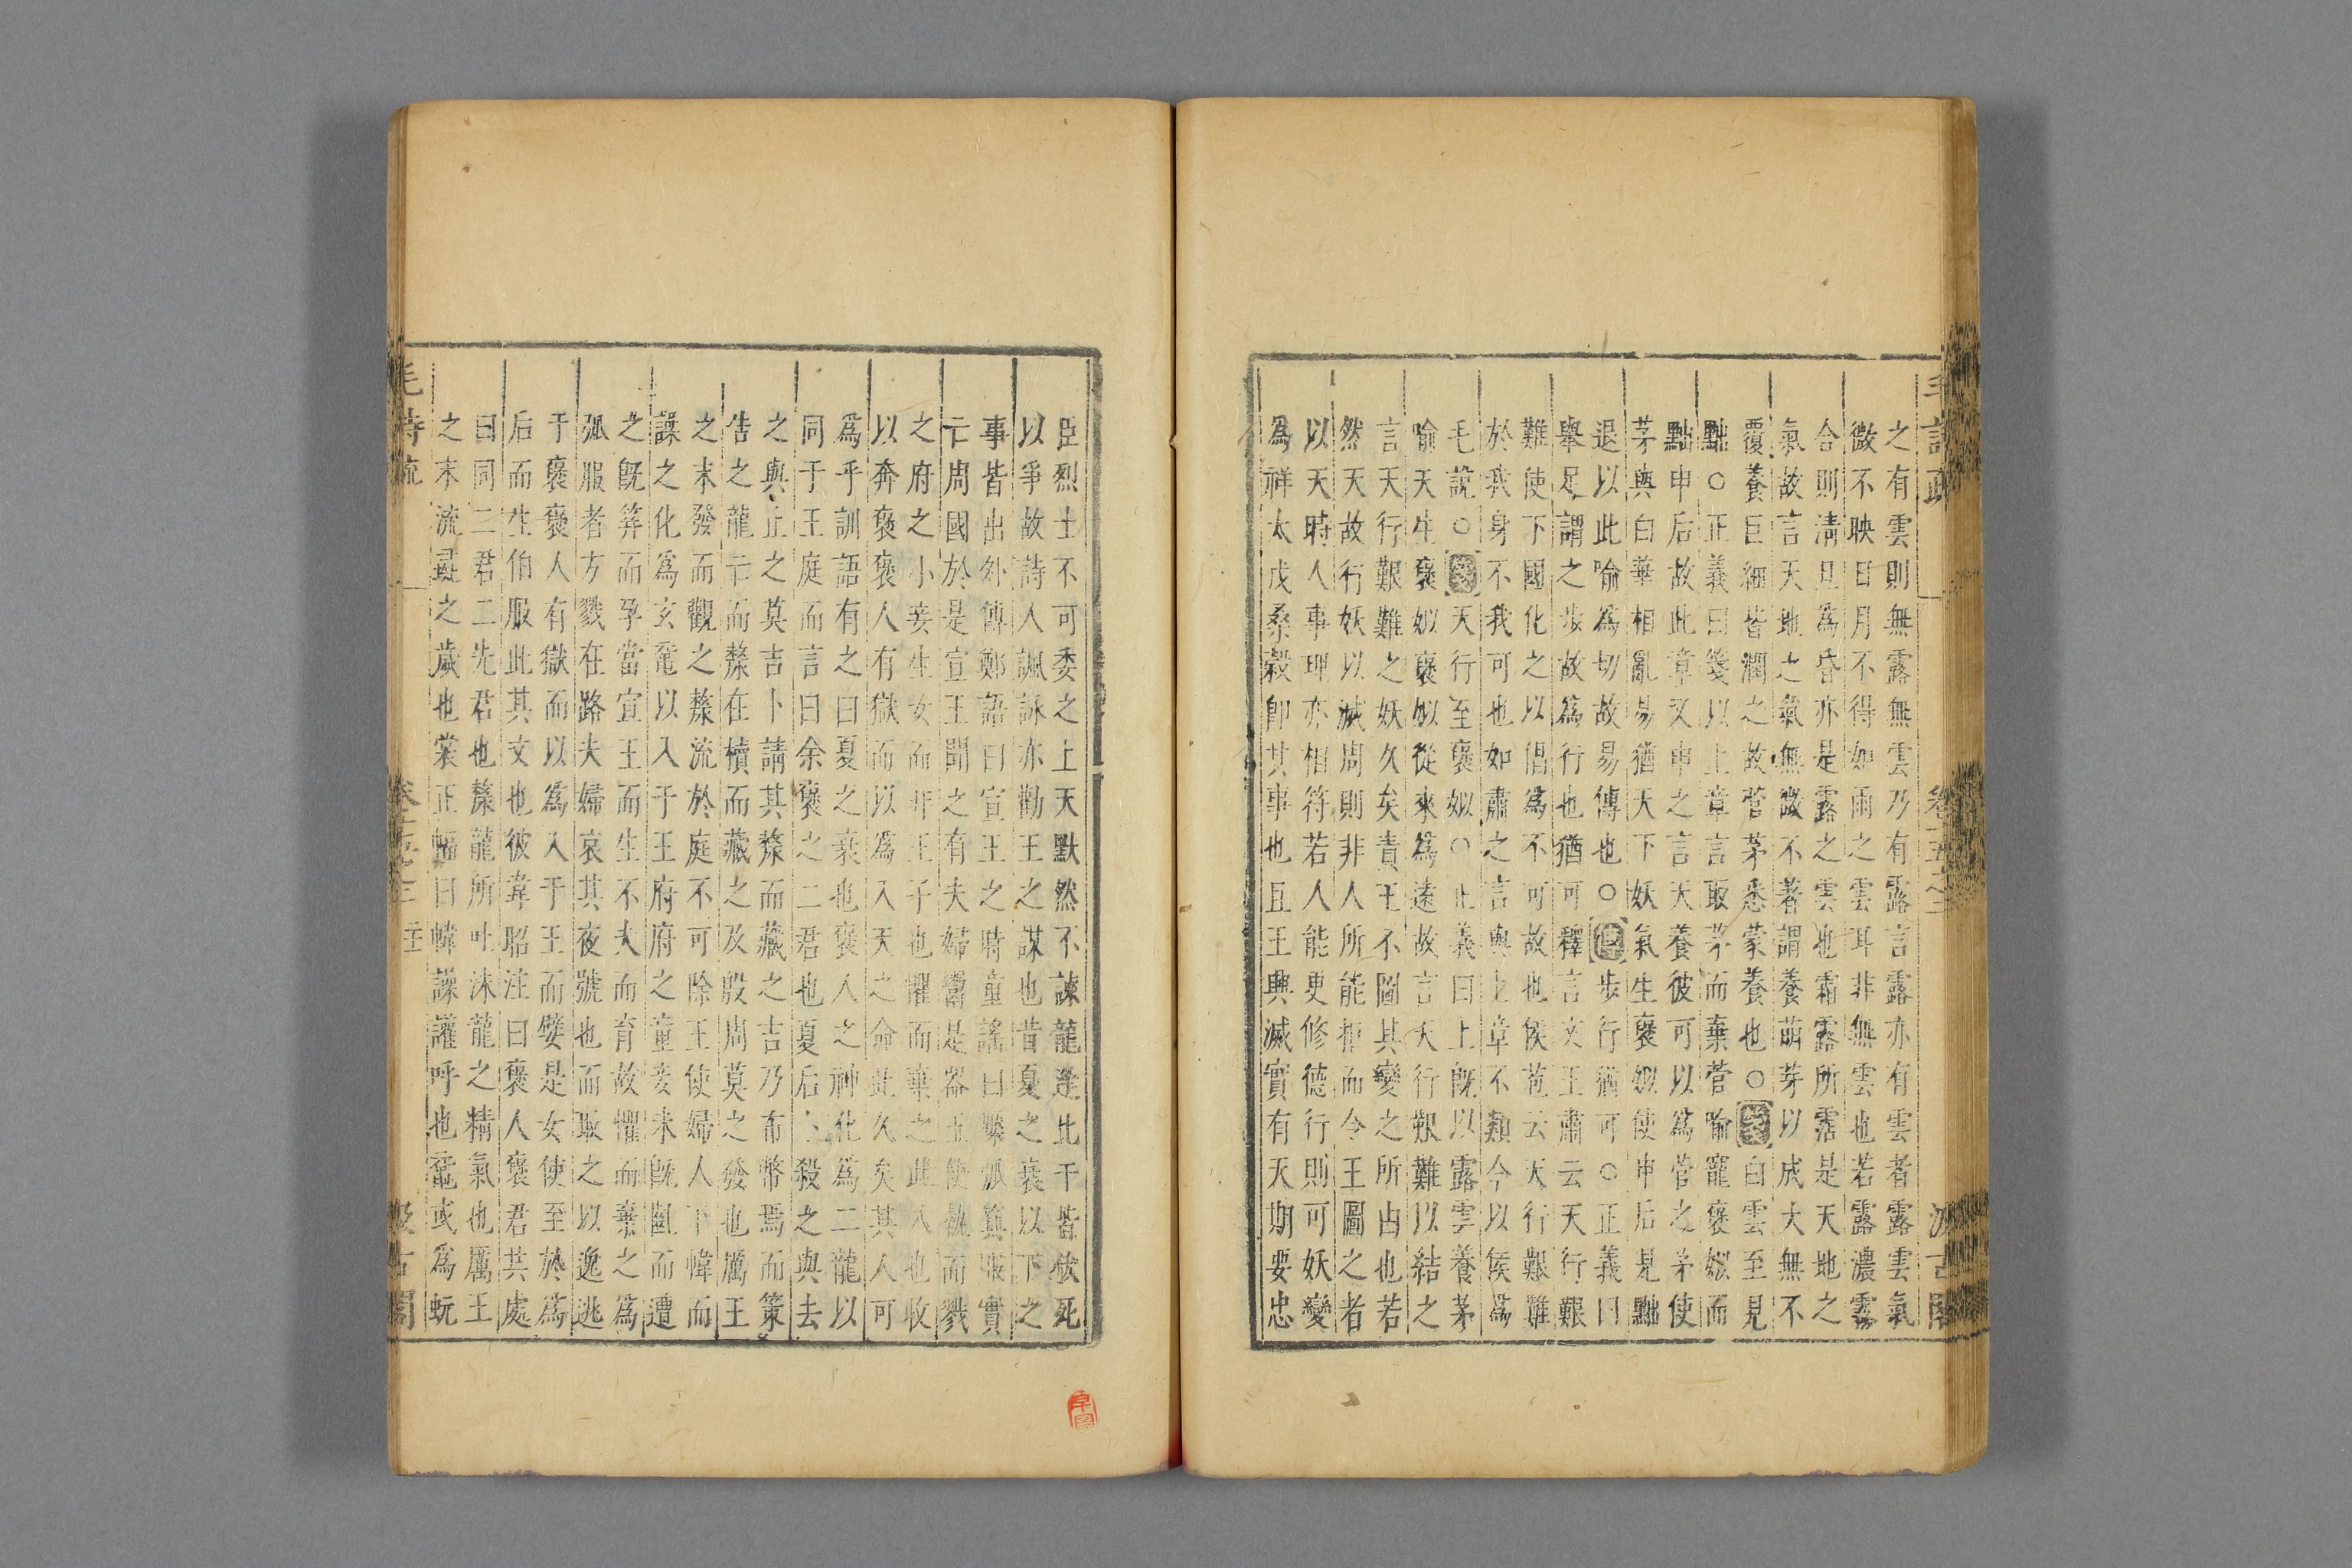 之有雲則無露無雲乃有露言露亦有雲者露雲氣
微不映日月不得如雨之雲耳非無雲也若露濃霧
合則清旦爲昏亦是露之雲也霜露所霑是天地之
氣故言天地之氣無微不著謂養萌芽以成大無不
覆養巨細皆潤之故菅茅悉蒙養也○箋白雲至見
黜○正義曰箋以上章言取茅而棄菅喻寵褒姒而
黜申后故此章又申之言天養彼可以爲菅之茅使
茅與白華相亂易猶天下妖氣生褒姒使申后見黜
退以此喻爲切故易傳也○傳步行猶可○正義曰
舉足謂之步故爲行也猶可釋言文王肅云天行艱
難使下國化之以倡爲不可故也侯苞云天行艱難
於我身不我可也如肅之言與上章不類今以侯爲
毛說○箋天行至褒姒○正義曰上旣以露雲養茅
喻天生褒姒褒姒從來爲遠故言天行艱難以結之
言天行艱難之妖久矣責王不圖其變之所由也若
然天故行妖以滅周則非人所能拒而令王圖之者
以天時人事理亦相符若人能更修德行則可妖變
爲祥太戊桑穀卽其事也且王興滅實有天期要忠
毛詩疏
卷十五之二
汲古閣
臣烈士不可委之上天默然不諫龍逢比干皆欲死
以爭故詩人諷詠亦勸王之謀也昔夏之衰以下之
事皆出外傳鄭語曰宣王之時童謠曰檿弧箕服實
亡周國於是宣王聞之有夫婦鬻是器王使執而戮
之府之小妾生女而非王子也懼而棄之此人也收
以奔褒褒人有獄而以爲入天之命此久矣其人可
爲乎訓語有之曰夏之衰也褒人之神化爲二龍以
同于王庭而言曰余褒之二君也夏后卜殺之與去
之與止之莫吉卜請其漦而藏之吉乃布幣焉而策
告之龍亡而漦在櫝而藏之及殷周莫之發也厲王
之末發而觀之漦流於庭不可除王使婦人不幃而
譟之化爲玄黿以入于王府府之童妾未旣齓而遭
之旣笄而孕當宣王而生不夫而育故懼而棄之爲
弧服者方戮在路夫婦哀其夜號也而取之以逸逃
于褒褒人有獄而以爲入于王而嬖是女使至於爲
后而生伯服此其文也彼韋昭注曰褒人褒君共處
曰同二君二先君也漦龍所吐沫龍之精氣也厲王
之末流彘之歲也裳正幅曰幃譟讙呼也黿或爲蚖
毛詩疏
卷十五之二
汲古閣